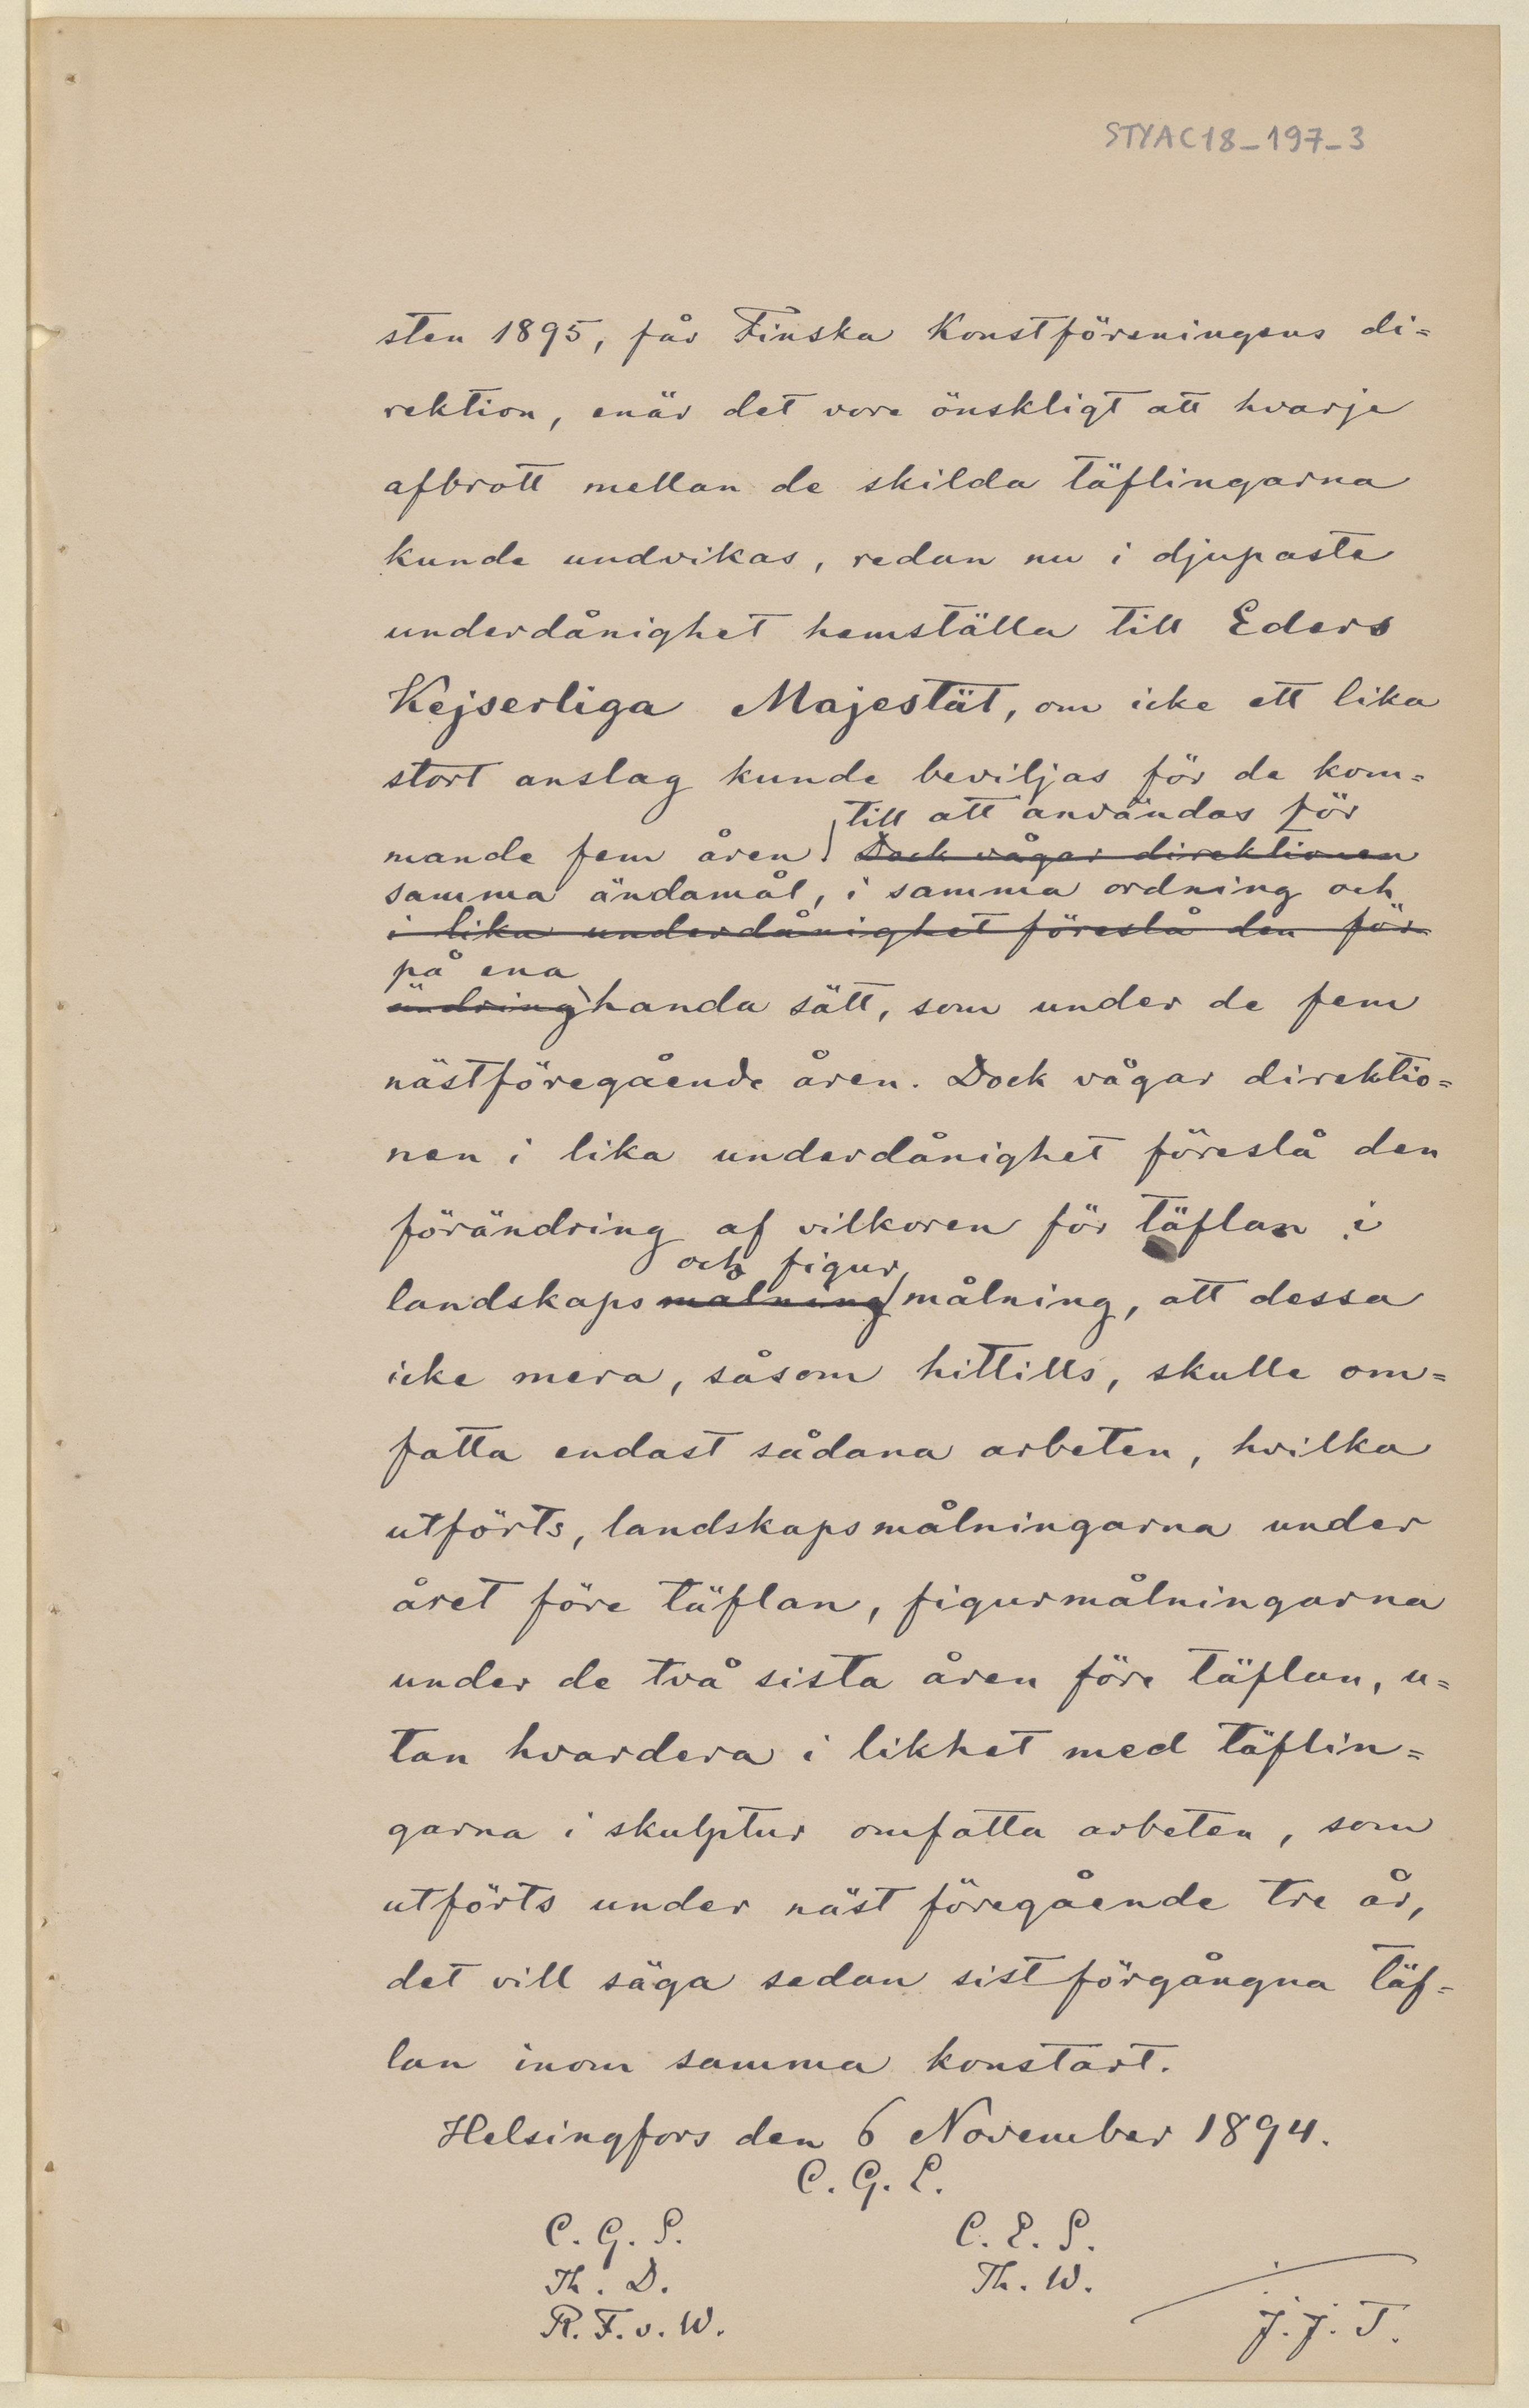 STYAC18_197_3
sten 1895, får Finska Konstföreningens di=
rektion, enär det vore önskligt att hvarje
afbrott mellan de skilda täflingarna
kunde undvikas, redan nu i djupaste
underdånighet hemställa till Eders
Kejserliga Majestät, om icke ett lika
stort anslag kunde beviljas för de kom=
till att användas för
mande fem åren. Dock vågar direktionen
samma ändamål, i samma ordning och
i lika underdånighet föreslå den för
på ena
ändring handa sätt, som under de fem
nästföregående åren. Dock vågar direktio=
nen i lika underdånighet föreslå den
förändring af vilkoren för täflan i
och figur
landskapsmålning målning, att dessa
icke mera, såsom hittills, skulle om=
fatta endast sådana arbeten, hvilka
utförts, landskapsmålningarna under
året före täflan, figurmålningarna
under de två sista åren före täflan, u=
tan hvardera i likhet med täflin=
garna i skulptur omfatta arbeten, som
utförts under näst föregående tre år,
det vill säga sedan sistförgångna täf=
lan inom samma konstart.
Helsingfors den 6 November 1894.
C. G. E.
C. G. S. C. E. S.
Th. D. Th. W.
R. F. v. W. J. J. T.